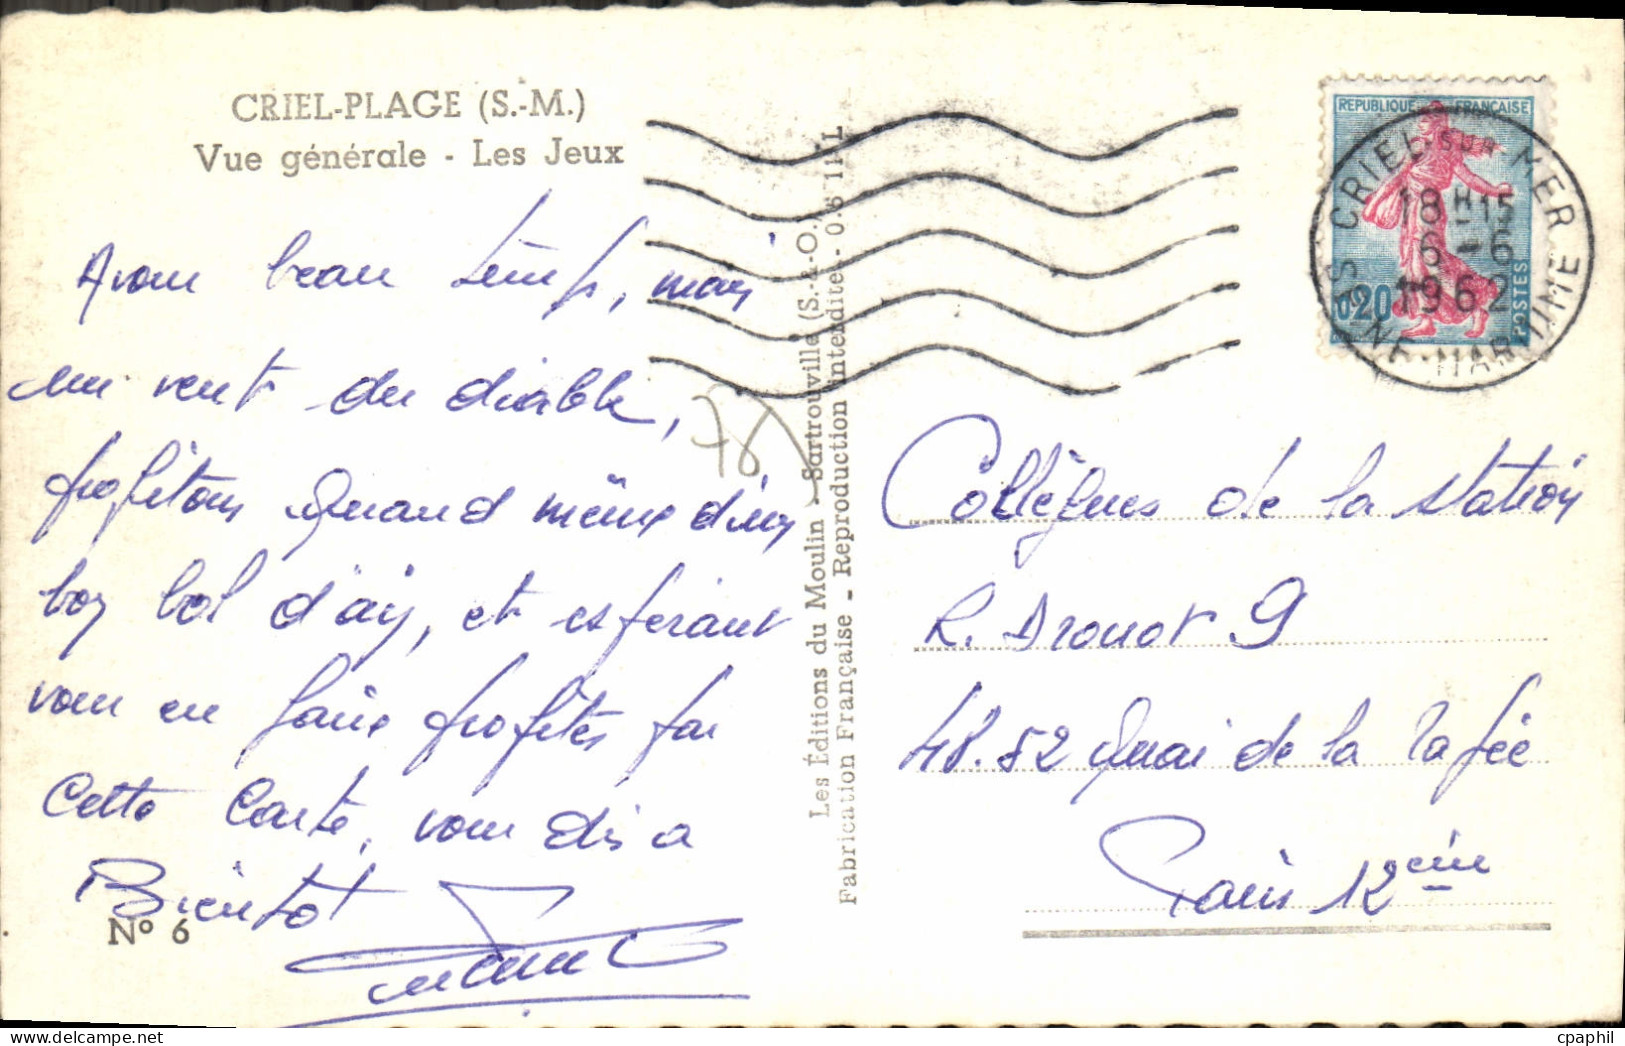 CRIEL-PLAGE (S.-M.)
Vue générale - Les Jeux
Avons beau temps, mais
un vent du diable,
profitons quand même d'un
bon bol d'air, et espérant
vous en faire profiter par
Cette Carte, vous dis a
Bientot
N° 6
78
Les Éditions du Moulin - Sartrouville (S.-&-O.)
Fabrication Française - Reproduction interdite - 0.6 11 L
REPUBLIQUE FRANÇAISE
0,20
POSTES
CRIEL SUR MER
18H15
6-6
1962
SEINE-MARITIME
Collègues de la station
R. Drouot 9
48.52 Quai de la Rapée
Paris 12ème
cpaphil